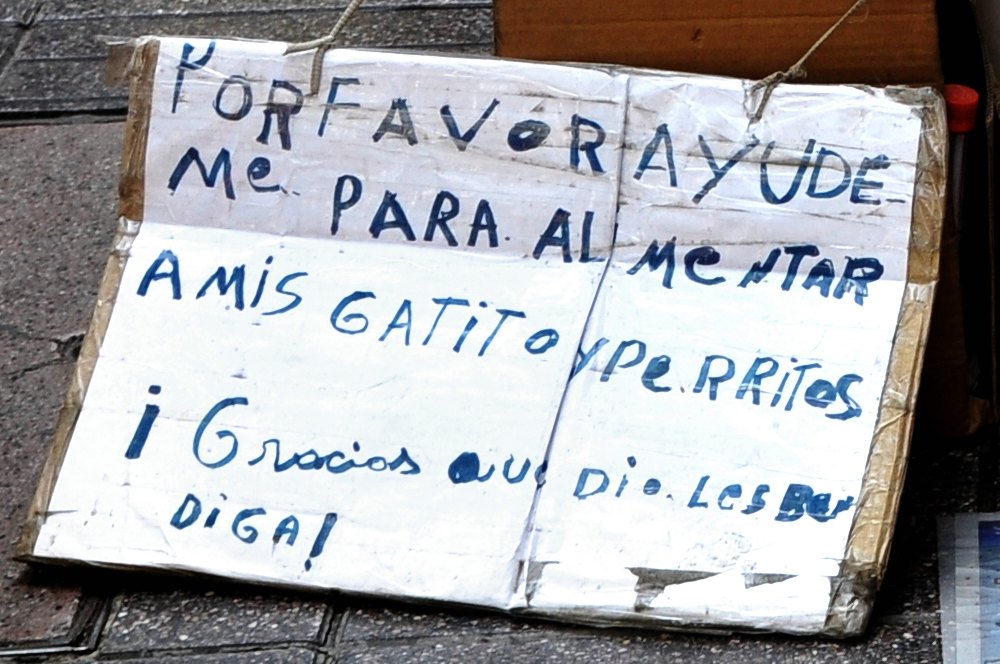 POR FAVOR AYUDE
Me PARA ALiMeNTAR
A MIS GATITO Y PeRRITOS
¡Gracias QUE Dio Les Ben
DIGA!